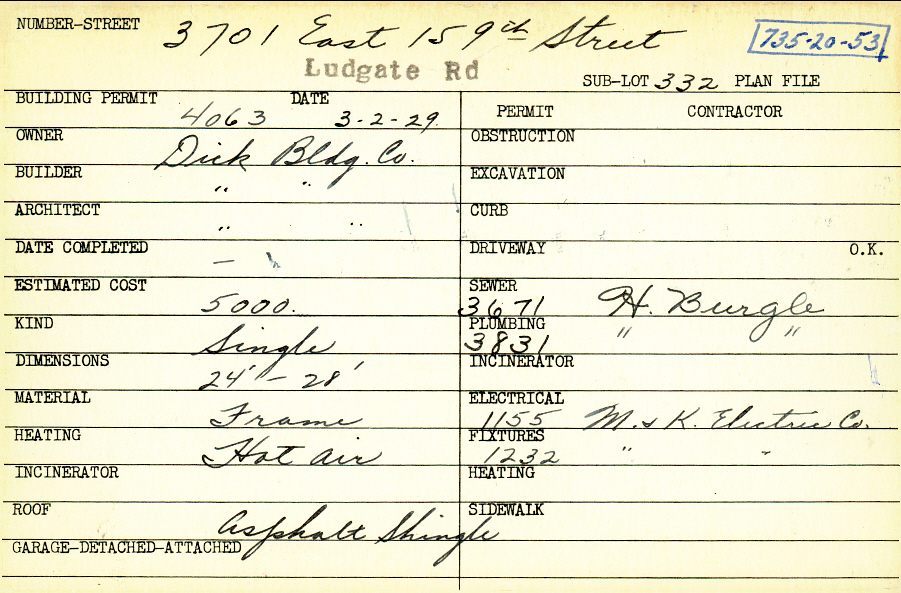 NUMBER-STREET 3701 East 159th Street 735-20-53
Ludgate Rd
SUB-LOT 332 PLAN FILE
BUILDING PERMIT 4063 DATE 3-2-29
OWNER Dick Bldg. Co.
BUILDER " "
ARCHITECT " "
DATE COMPLETED —
ESTIMATED COST 5000.
KIND Single
DIMENSIONS 24' - 28'
MATERIAL Frame
HEATING Hot air
INCINERATOR
ROOF Asphalt Shingle
GARAGE-DETACHED-ATTACHED
PERMIT CONTRACTOR
OBSTRUCTION
EXCAVATION
CURB
DRIVEWAY O.K.
SEWER 3671 H. Burgle
PLUMBING 3831 " "
INCINERATOR
ELECTRICAL 1155 M. & K. Electric Co.
FIXTURES 1232 " "
HEATING
SIDEWALK